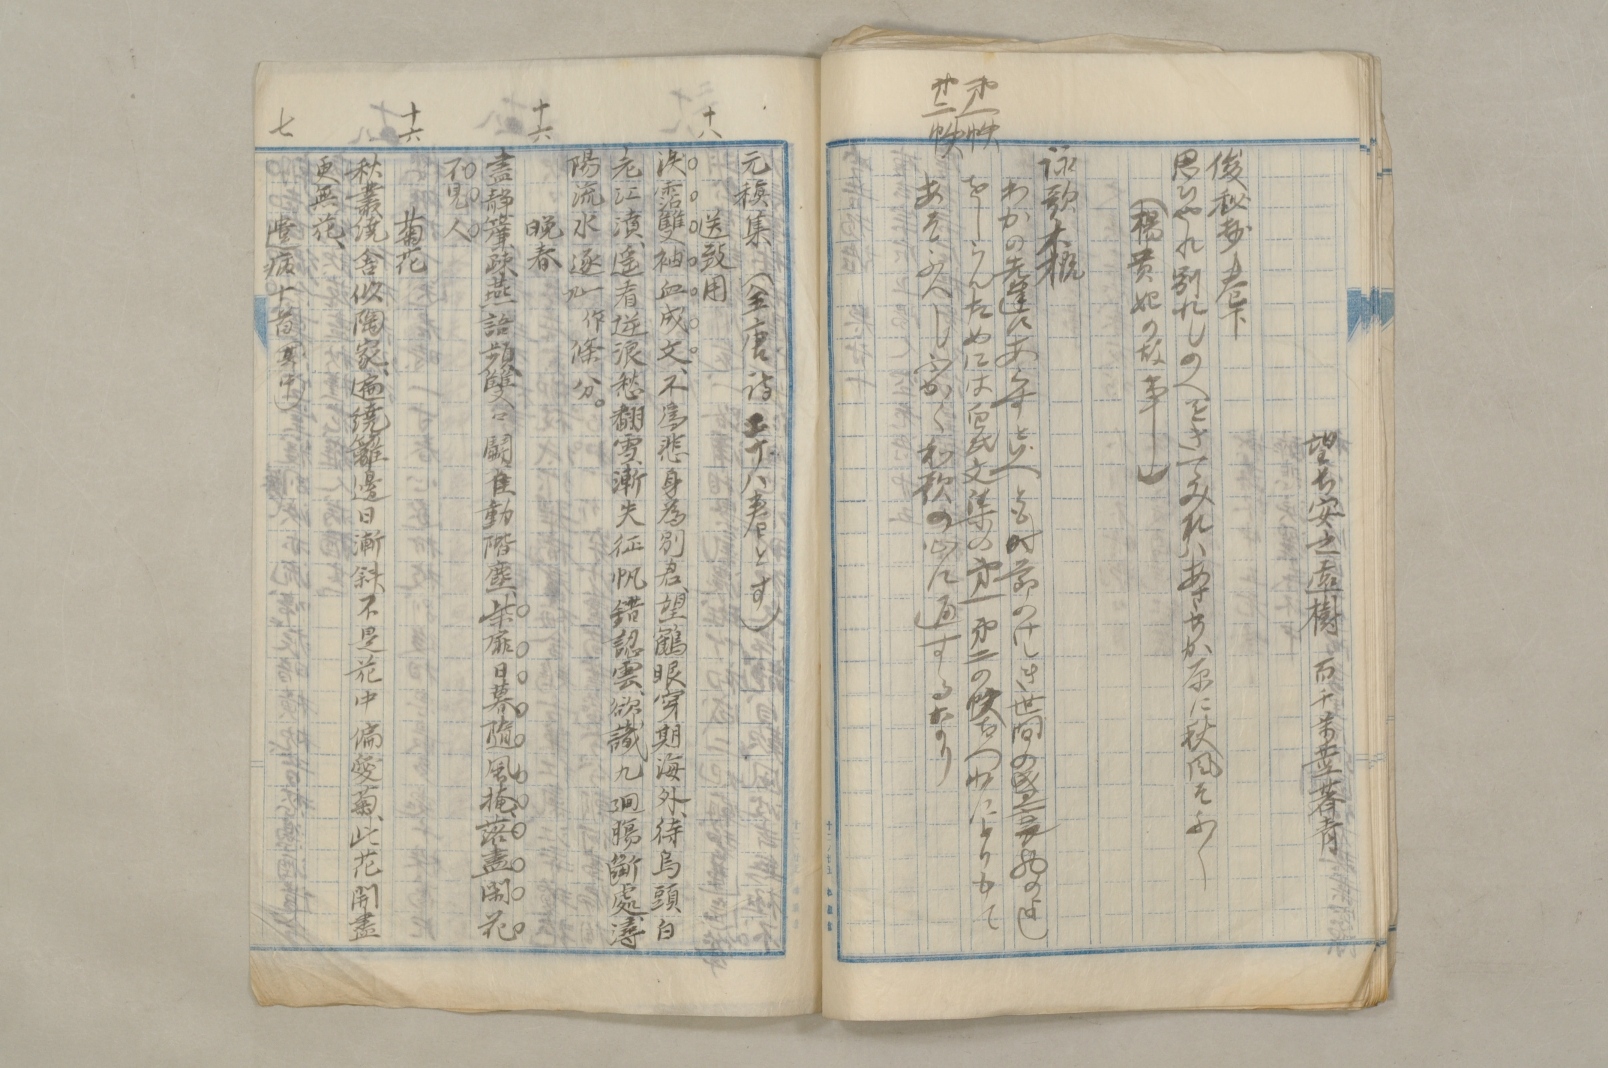 望長安之遠樹 百千万莖薺青
俊秘抄上巻下
思ひやれ別れしのへをきてみれハあさちか原に秋風そふく
(楊貴妃の故事)
詠歌大概
わかの先達にあらずといへとも時節のけしき世間の盛衰物の由
第一帙
をしらんためには白氏文集の第一第二の帙をつねにとりもて
第二帙
あそふへしふかく和歌の心に通するなり
元稹集(全唐詩二十八巻とす)
十八
送致用
涙霑雙袖血成文、不為悲身為別君、望鶴眼穿期海外、待烏頭白
老江濆、遥看逆浪愁翻雪、漸失征帆錯認雲、欲識九迴腸斷處、潯
陽流水逐(一作)條分。
十六
晩春
晝靜簾疎燕語頻、雙々鬭雀動階塵、柴扉日暮隨風掩、落盡閑花
不見人
十六
菊花
秋叢繞舎似陶家、遍繞籬邊日漸斜、不是花中偏愛菊、此花開盡
更無花、
七
遣病十首(其七)